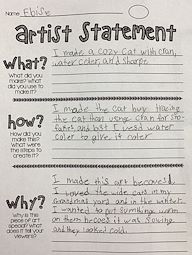 Name: Eloise
Artist Statement
What?
What did you make? what did you use to make it?
I made a cozy cat with cran,
water coler, and sharpe
how?
How did you make this? What were the steps to create it?
I made the cat buy tracing
the cat than using cran for
fist, and last I used water
coler to give it coler
Why?
Why is this piece of art special? What does it tell your viewers?
I made this art becaues
I loved the wide cats in my
grandmas yard and in the winter
I wanted to put sumthing worm
on them becaes it was snowing
and they looked cold.